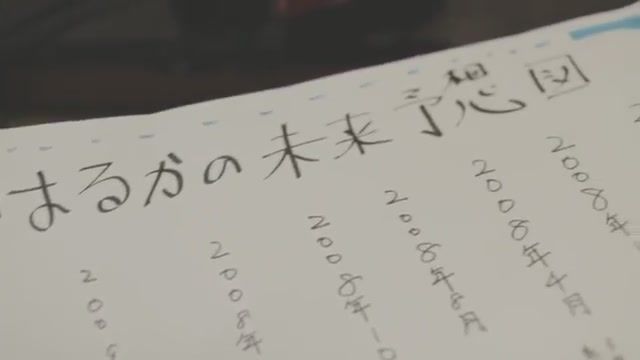 はるかの未来予想図
2008年
2008年4月
2008年8月
2008年10
2008年
2008